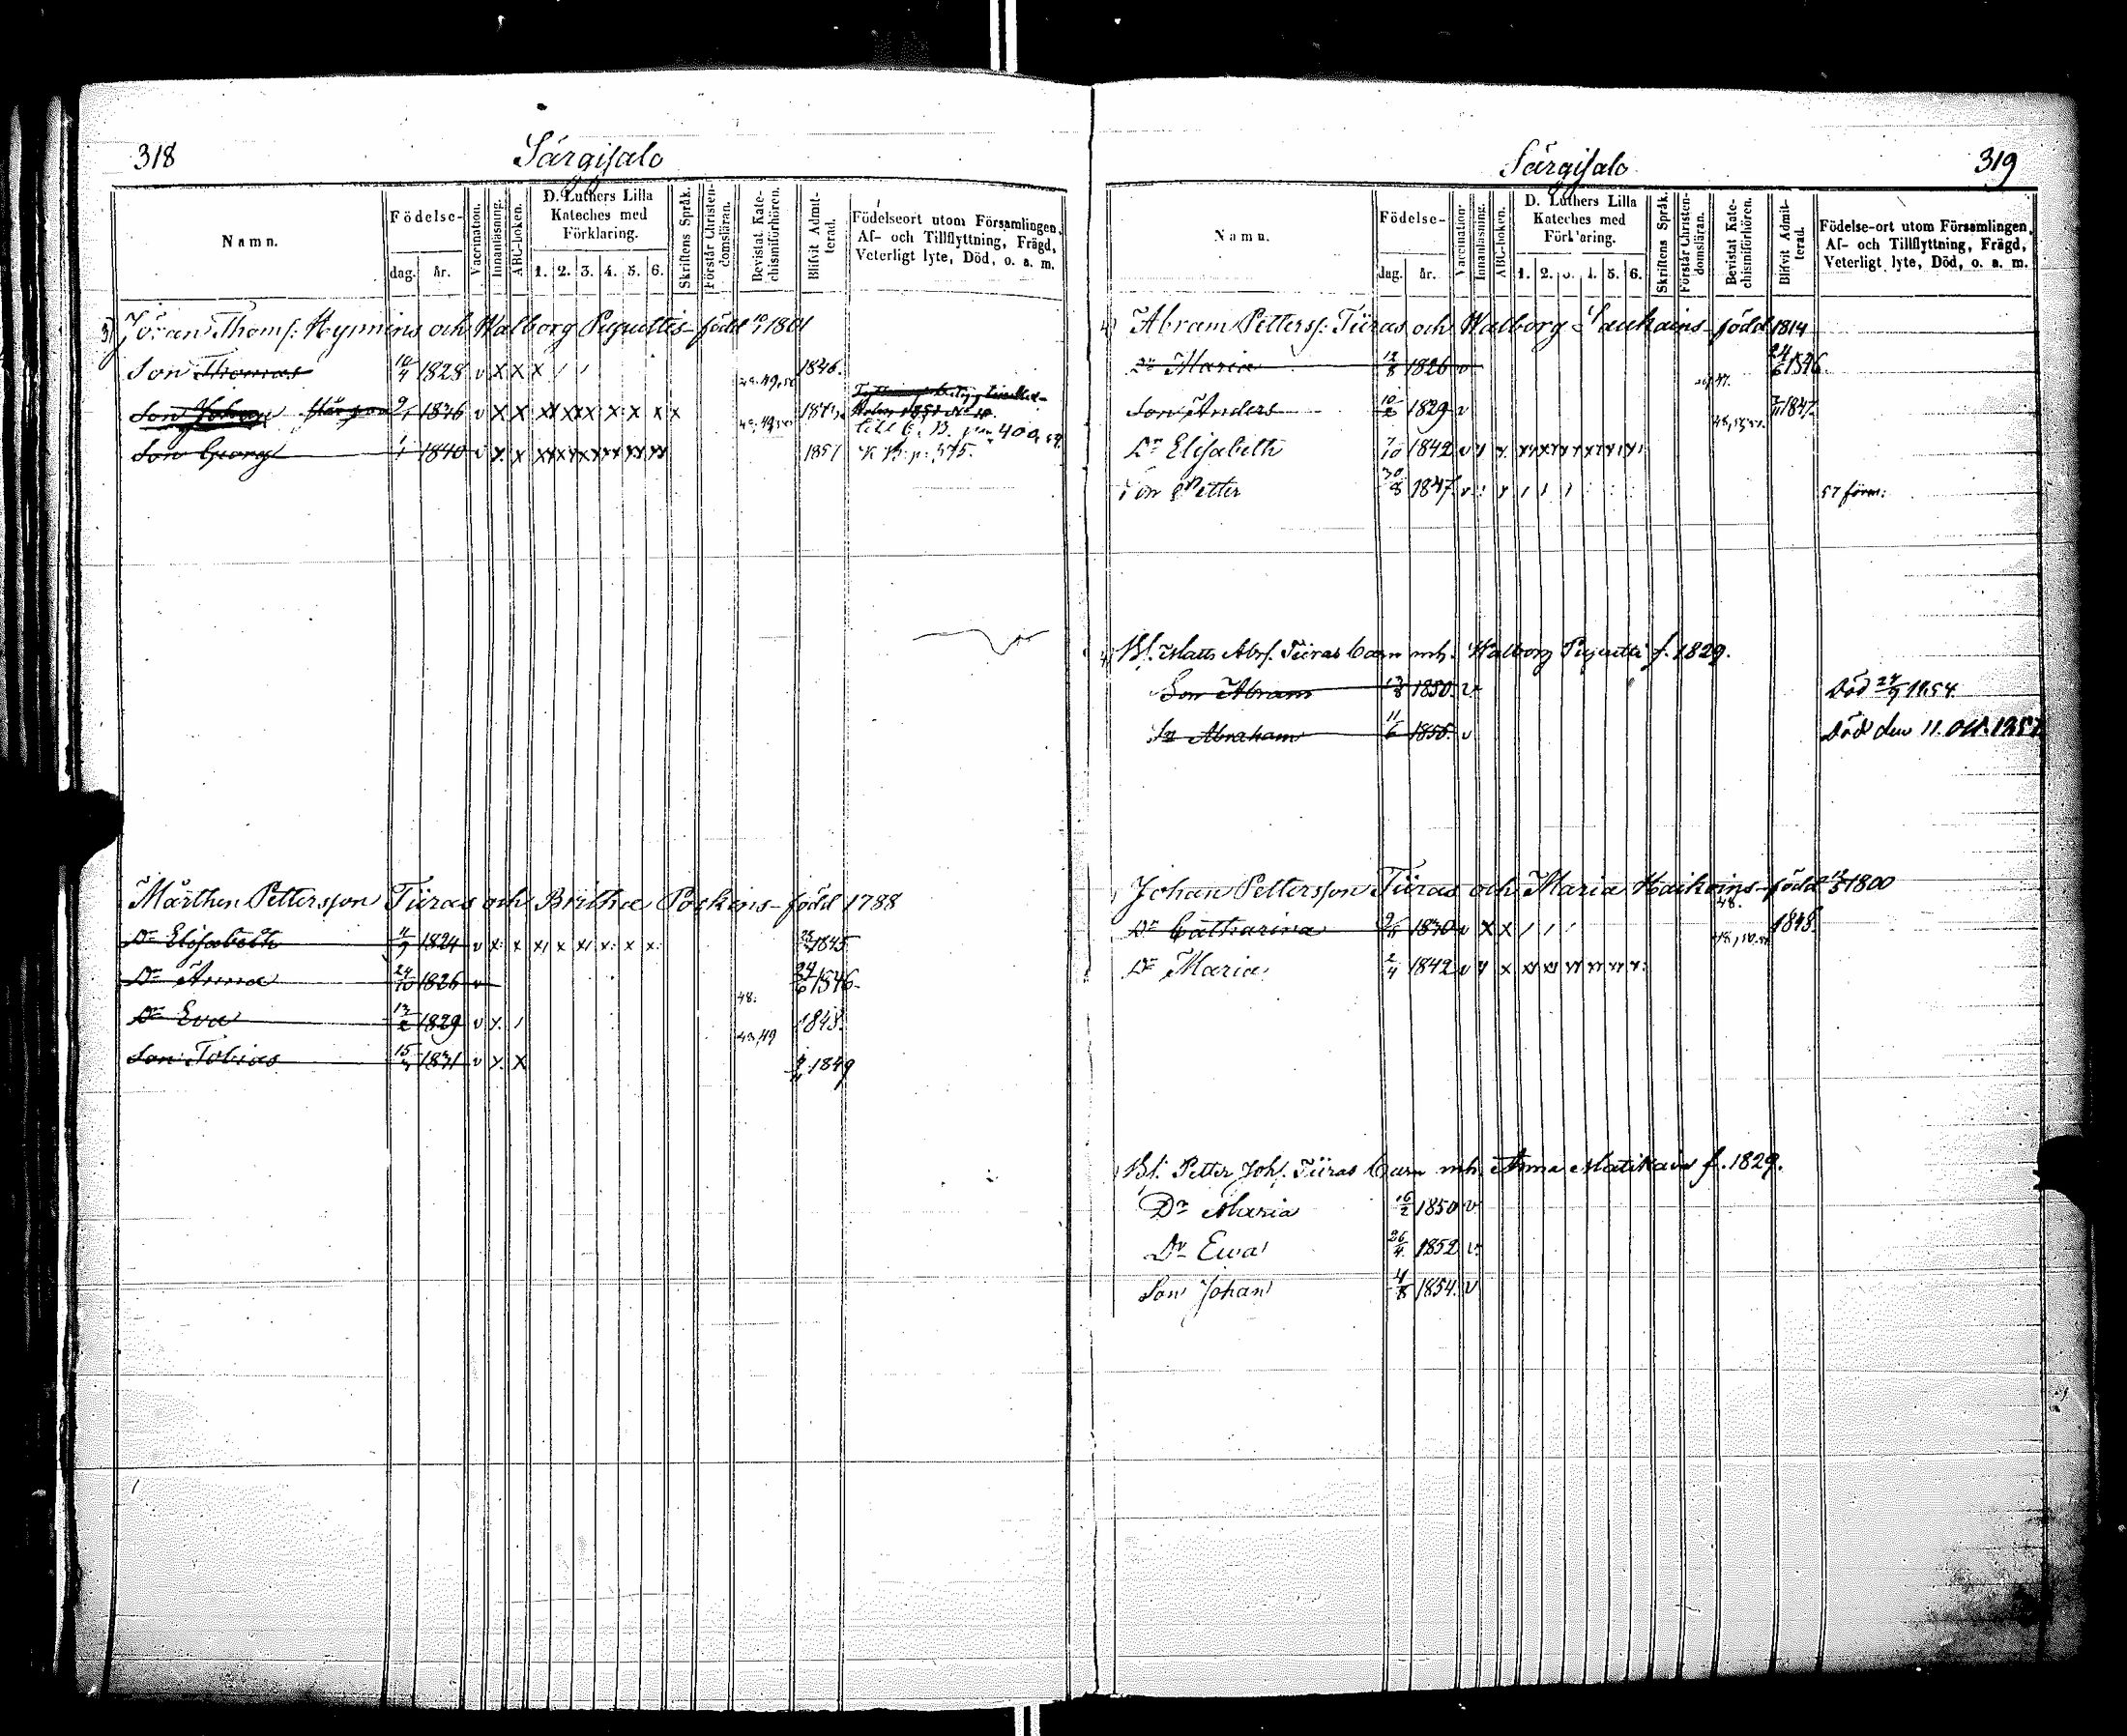 318
Särgisalo
Namn.
Födelse-
dag.
år.
Vaccination.
Innanläsning.
ABC-boken.
D. Luthers Lilla
Kateches med
Förklaring.
1. 2. 3. 4. 5. 6.
Skriftens Språk.
Förstår Christen-
domsläran.
Bevistat Kate-
chismiförhören.
Blifvit Admit-
terad.
Födelseort utom Församlingen,
Af- och Tillflyttning, Frägd,
Veterligt lyte, Död, o. a. m.
3) Jöran Thoms: Hynnins och Walborg född 1801
Son Thomas 1828 v X X X 1846.
Son Johan 1836 v X X
till K. B. 400
Son Georg 1840 v X X 1851 K B. p. 575.
Mårthen Pettersson Tiiras och Britha Poskins född 1788
Dr Elisabeth 11/9 1824 v x x 1845
Dr Anna 24/10 1826 v 24/6 1846
48.
Dr Eva 1829 v x 1848.
48, 49
Son Tobias 1831 v x x 1849
Särgisalo
319
Namn.
Födelse-
dag.
år.
Vaccination.
Innanläsning.
ABC-boken.
D. Luthers Lilla
Kateches med
Förklaring.
1. 2. 3. 4. 5. 6.
Skriftens Språk.
Förstår Christen-
domsläran.
Bevistat Kate-
chismiförhören.
Blifvit Admit-
terad.
Födelse-ort utom Församlingen,
Af- och Tillflyttning, Frägd,
Veterligt lyte, Död, o. a. m.
4) Abram Petters: Tiiras och Walborg Laukains född 1814
Dr Maria 12/8 1826 v 24/6 1846.
Son Anders 1829 v 1847.
Dr Elisabeth 7/10 1842 v
Son Petter 30/8 1847 v 57 förm:
4) Bf. Matts Abrs. Tiiras barn mh. Walborg f. 1829.
Son Abram 1850. v Död 1854
Sn Abraham 11/6 1855. v Död den 11. Oct. 1857
Johan Pettersson Tiiras och Maria Haikoins född 1800
48.
Dr Catharina 1830 v X X 1848.
Dr Maria 2/4 1842 v
Bf. Petter Johs. Tiiras barn mh. Anna Matikain f. 1829.
Dr Maria 16/2 1850 v
Dr Ewa 26/4 1852 v
Son Johan 4/8 1854. v